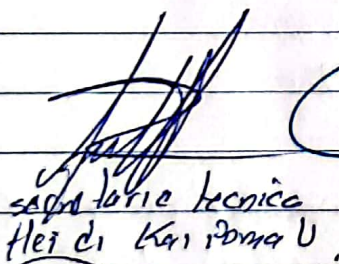 secretaria tecnica
Heidi Kari Poma U